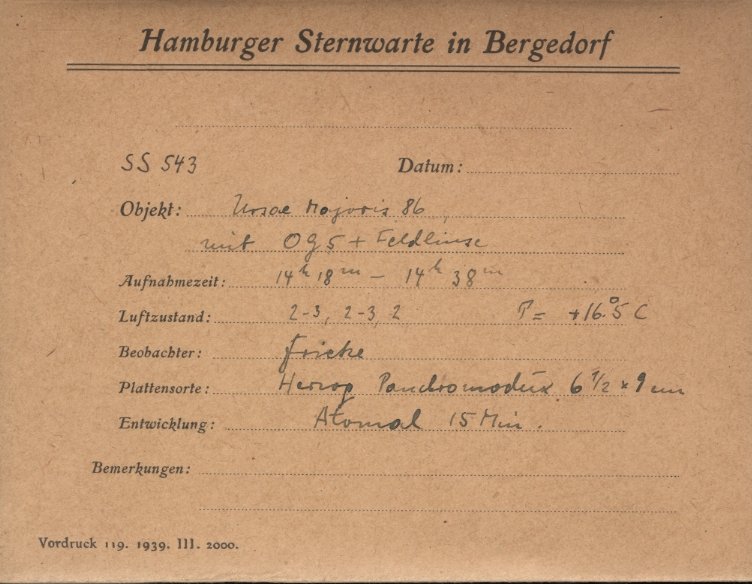 Hamburger Sternwarte in Bergedorf
SS 543 Datum:
Objekt: Ursae Majoris 86
mit OG5 + Feldlinse
Aufnahmezeit: 14h 18m – 14h 38m
Luftzustand: 2-3, 2-3, 2 T = +16°.5 C
Beobachter: Fricke
Plattensorte: Herzog 6 1/2 × 9 cm
Entwicklung: Atomal 15 Min.
Bemerkungen:
Vordruck 119. 1939. III. 2000.